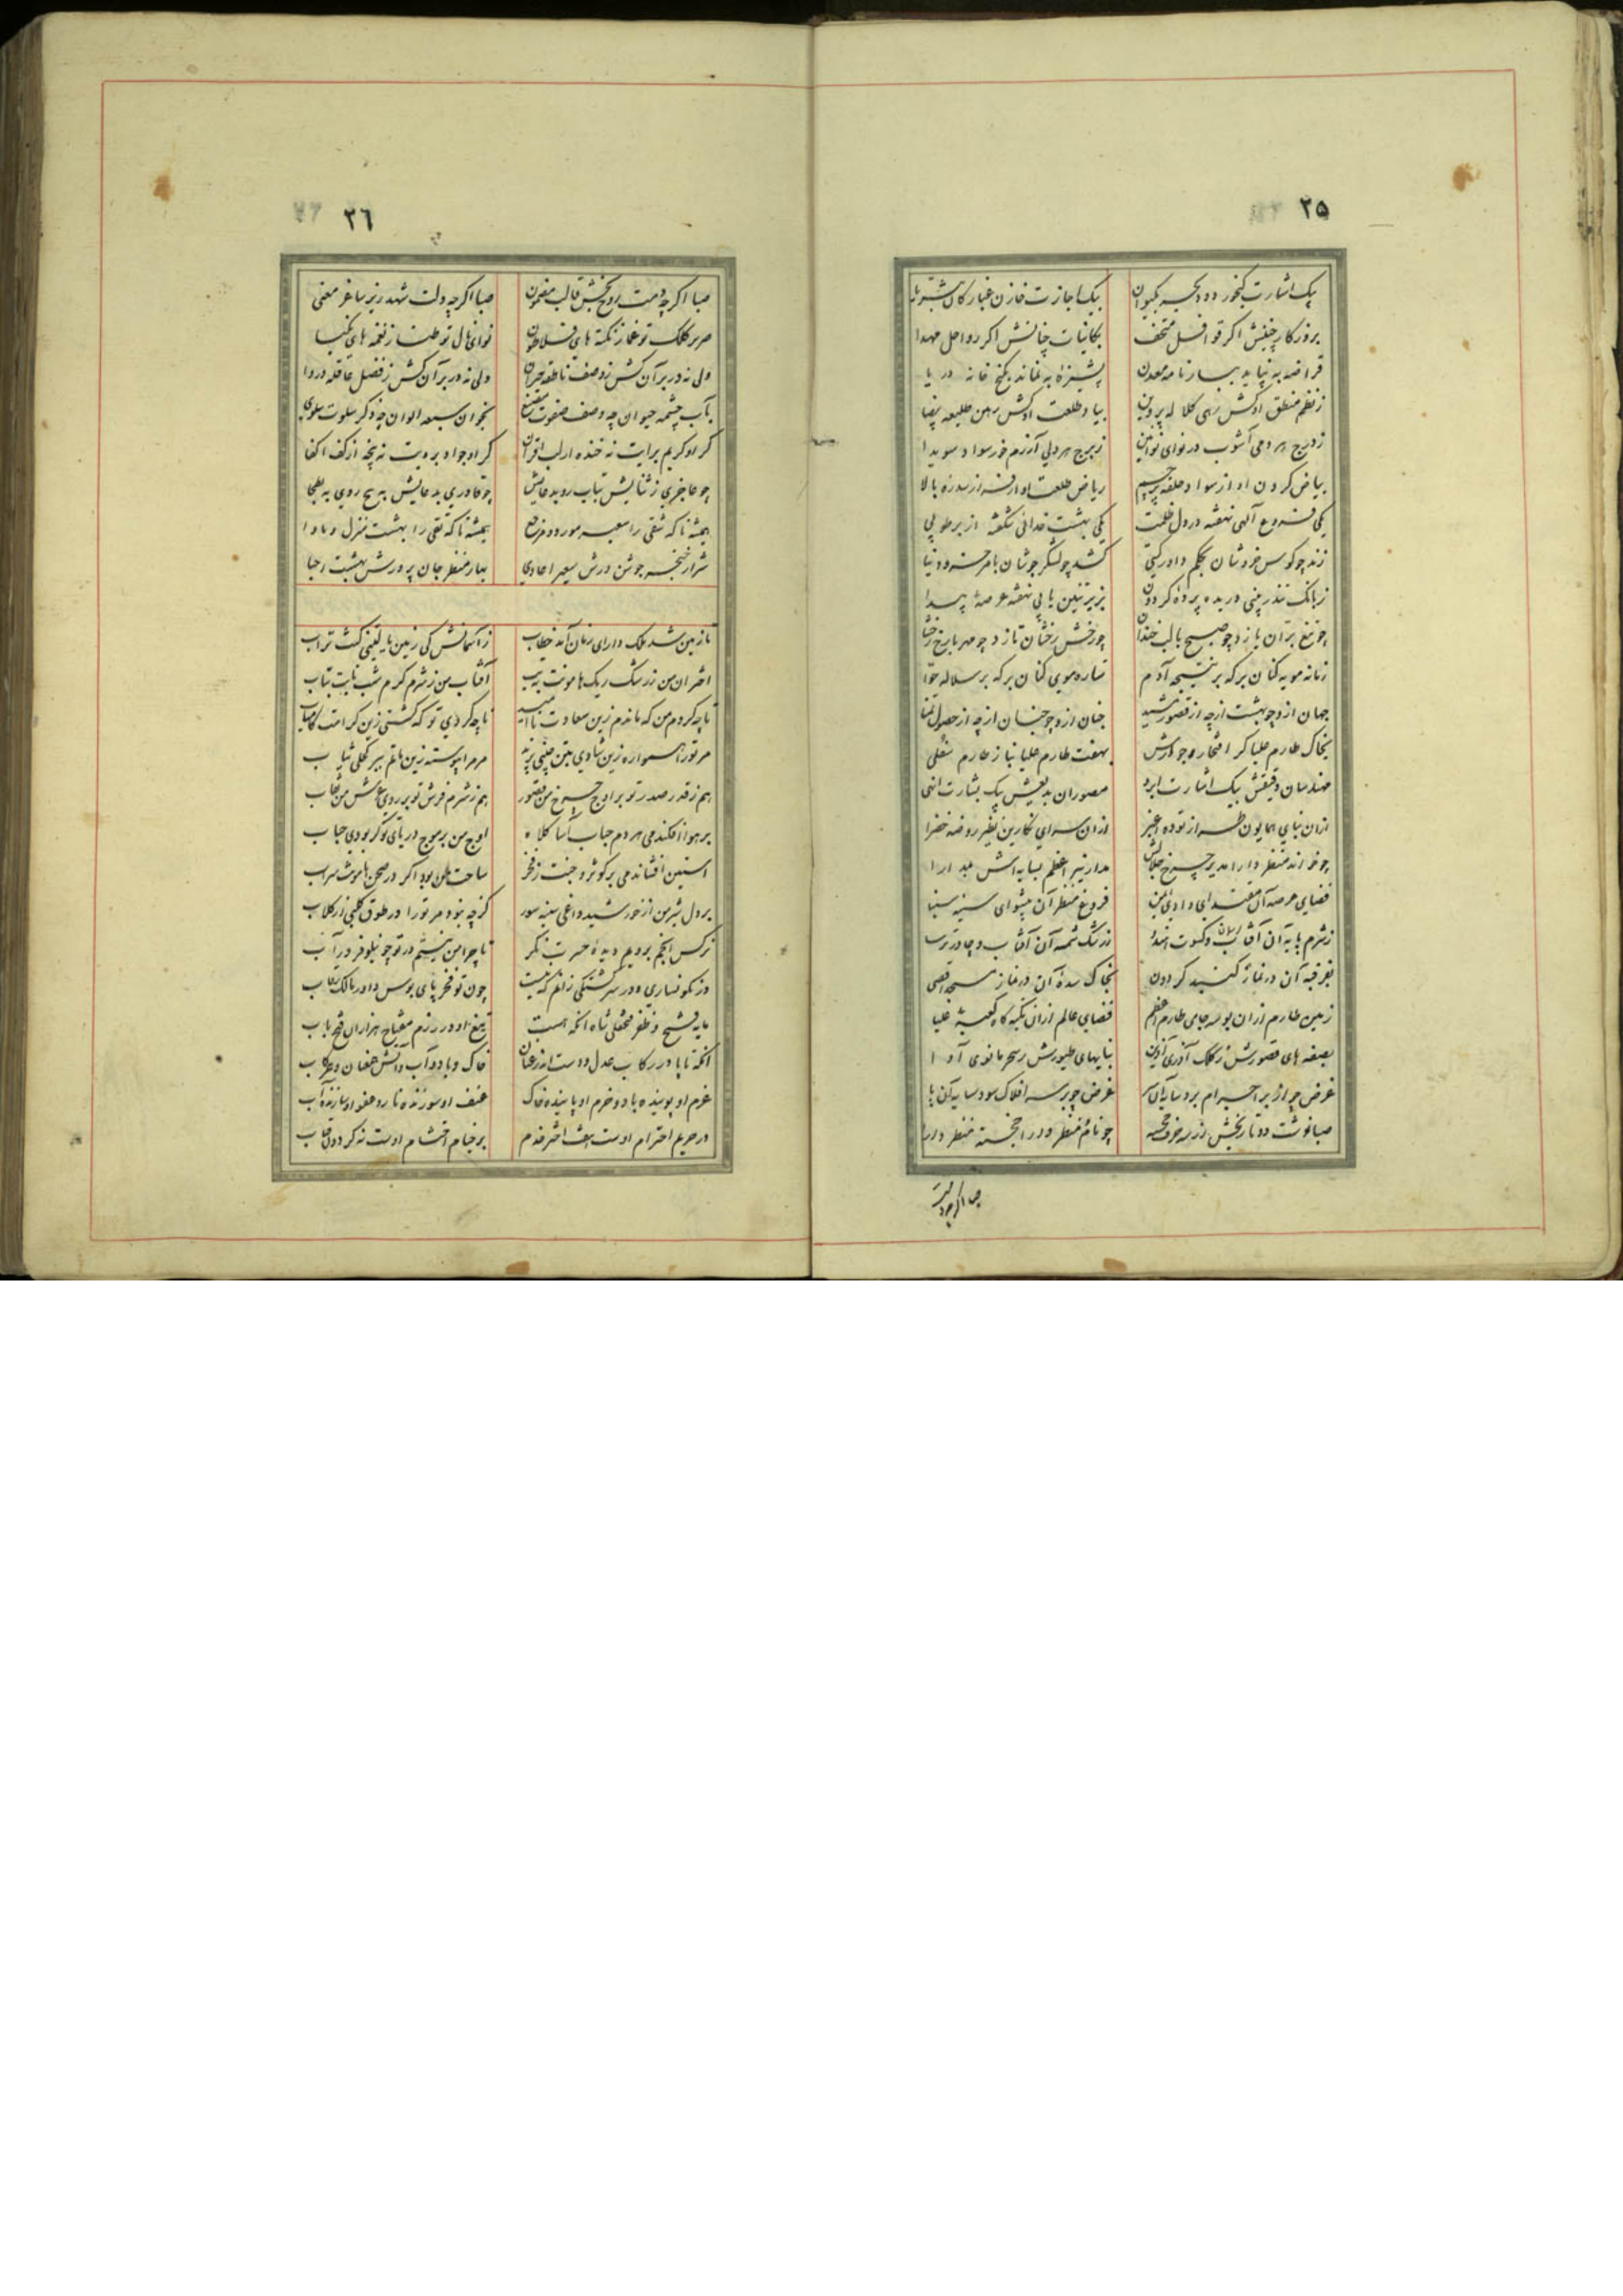 ۲۵
بیک اشارت گنجور دود بحر بکیوان بیک اجازت خازن غبار کان بثریا
بروزکار چنینش اگر قوافل متحف بکاینات چنانش اگر رواحل مهدا
قراضه به نیاید ببارنامه معدن پشیزه به نماند بگنج خانه دریا
ز نظم منطق او کش رهی کلاله پروین بیاد طلعت او کش رهین طلیعه بیضا
ز درج هر دمی آشوب در نوای نوآیین ز برج هر دلی آزرم خور سواد سویدا
بیاض گردن او از سواد حلقه پرچم ریاض طلعت او از فر از سدره بالا
یکی فروغ الهی نهفته در دل ظلمت یکی بهشت خدائی شکفته از بر طوبی
زند چو کوس خروشان بحکم داور گیتی کشد چو لشکر جوشان بامر خسرو دنیا
ز بانک تندر بینی دریده پرده گردون بزیر تنین یابی نهفته عرصه بیدا
چو تیغ بران یازد چو صبح با لب خندان چو رخش رخشان تازد چو مهر با رخ رخشا
زمانه مویه کنان بر که بر نتیجه آدم ستاره موی کنان بر که بر سلاله حوا
جهان ازو چو بهشت از چه از قصور مشید جنان ازو چو جنان از چه از حصول تمنا
بخاک طارم علیا کر افتخار وجودش بهفت طارم علیا نیاز طارم سفلی
مهندسان دقیقش بیک اشارت ابرو مصوران بدیعش بیک بشارت انهی
ازان بنای همایون طر از توده اغبر ازان سرای نکارین نظیر روضه خضرا
چو خواند منظر دارا مدیر چرخ جلالش مدار نیر اعظم بسایه اش بمدارا
فضای عرصه آن مقتدای وادی ایمن فروغ منظر آن پیشوای سینه سینا
ز شرم پایه آن آفتاب و کسوت ز رشک شمسه آن آفتاب و چادر ترسا
بغرفه آن در نماز گنبد گردون بخاک سده آن در نماز مسجد اقصی
زمین طارم ازان بوسه جای طارم اعظم فضای عالم ازان تکیه گاه کعبه علیا
بصفه های قصورش ز کلک آذری آذین بنایهای طیورش ز سحر مانوی آوا
غرض چو از بر اجرام برد سایه آن سر غرض چو بر سر افلاک سود سایه آن پا
صبا نوشت دو تاریخش از سه حرف خجسته چو نام منظر و در خجسته منظر دارا
صبا اگرچه دمت
۳٦
صبا اگرچه دمت روح بخش قالب مضمون صبا اگرچه دلت شهد ریز ساغر معنی
صریر کلک تو غماز نکته های فلاطون نوای نال تو طناز نغمه های نکیسا
ولی نه در بر آن کش ز وصف ناطقه حیران ولی نه در بر آن کش ز فضل عاقله دروا
بآب چشمه حیوان چه وصف صفوت بخوان سبعه الوان چه ذکر سلوت سلوی
کر او کریم برایت نه خنده از لب اقران کر او جواد برویت نه پنجه از کف اکفا
چو عاجزی ز ثنایش بتاب رو بدعایش چو قادری بدعایش بهیچ روی به یلجا
همیشه تا که شقی را سعیر مورد و مرجع همیشه تا که تقی را بهشت منزل و ماوا
شرار خنجر جوشن درش سعیر اعادی بهار منظر جان پرورش بهشت احبا
تا زمین شد ملک دارای زمان آمد خطاب ز آسمانش کی زمین یا لیتنی کنت تراب
اختران من ز رشک ریک هامونت بتب آفتاب من ز شرم کرم شب تابت بتاب
تا چه کردم من که ماندم زین سعادت ناامید تا چه کردی تو که گشتی زین کرامت کامیاب
مر تو را همواره زین شادی بتن چینی پرند مر مرا پیوسته زین ماتم ببر کحلی ثیاب
هم ز قدر صدر تو بر اوج چرخ من قصور هم ز شرم فرش تو بر روی عرش من نقاب
بر هوا افکندمی هر دم حباب آسا کلاه اوج من بر موج دریای تو کر بودی حباب
آستین افشاندمی بر کوثر و جنت ز فخر ساحت من بود اگر در صحن هامونت سراب
بر دل شیر من از خورشید داغی سینه سوز کر چه نبود مر تو را در طوق کلبی از کلاب
نرگس انجم برویم دیده حسرت نکر تا چرا من نیستم در تو چو نیلوفر در آب
وز نکونساری و در سرگشتگی زانم که نیست چون تو فخرم پای بوس داور مالک رقاب
مایه فتح و ظفر فتحعلی شاه آنکه هست تیغ او در رزم مفتاح هزاران فتح باب
آنکه تا پا در رکاب عدل و دست اندر عنان خاک و باد و آب و آتش همعنان و همرکاب
عزم او پوینده باد و حزم او پاینده خاک عنف او سوزنده نار و عفو او سازنده آب
در حریم احترام اوست هفت اختر خدم بر خیام احتشام اوست نه کردون قباب